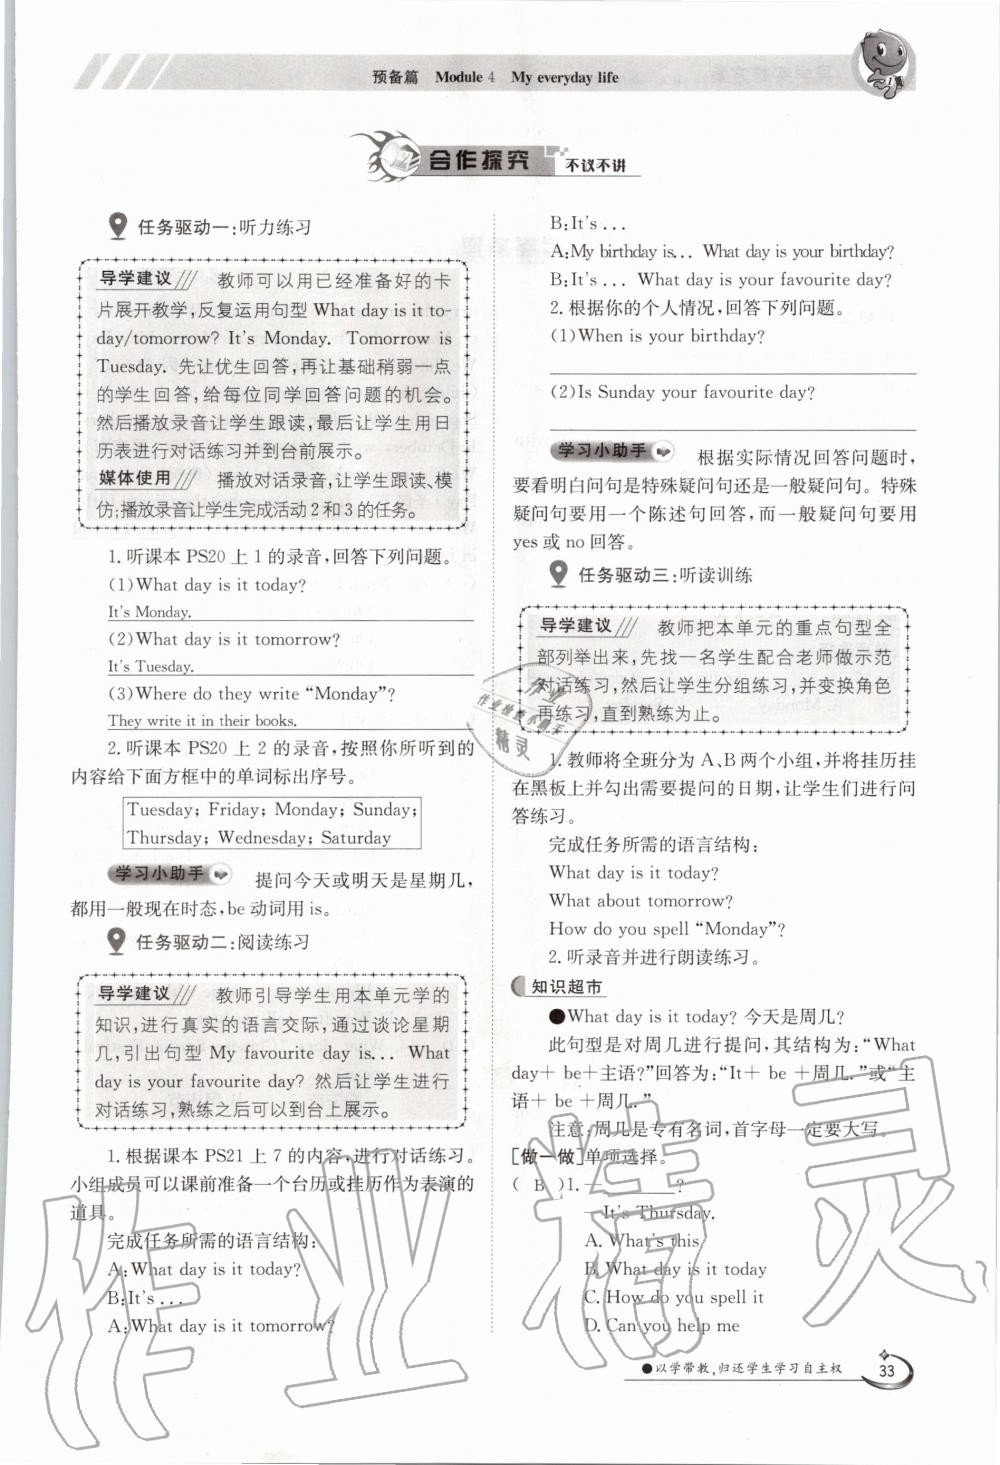 预备篇 Module 4 My everyday life
合作探究 不议不讲
任务驱动一:听力练习
导学建议/// 教师可以用已经准备好的卡
片展开教学,反复运用句型 What day is it to-
day/tomorrow? It's Monday. Tomorrow is
Tuesday. 先让优生回答,再让基础稍弱一点
的学生回答,给每位同学回答问题的机会。
然后播放录音让学生跟读,最后让学生用日
历表进行对话练习并到台前展示。
媒体使用/// 播放对话录音,让学生跟读、模
仿;播放录音让学生完成活动 2 和 3 的任务。
1. 听课本 PS20 上 1 的录音,回答下列问题。
(1)What day is it today?
It's Monday.
(2)What day is it tomorrow?
It's Tuesday.
(3)Where do they write “Monday”?
They write it in their books.
2. 听课本 PS20 上 2 的录音,按照你所听到的
内容给下面方框中的单词标出序号。
Tuesday; Friday; Monday; Sunday;
Thursday; Wednesday; Saturday
学习小助手 提问今天或明天是星期几,
都用一般现在时态,be 动词用 is。
任务驱动二:阅读练习
导学建议/// 教师引导学生用本单元学的
知识,进行真实的语言交际,通过谈论星期
几,引出句型 My favourite day is... What
day is your favourite day? 然后让学生进行
对话练习,熟练之后可以到台上展示。
1. 根据课本 PS21 上 7 的内容,进行对话练习。
小组成员可以课前准备一个台历或挂历作为表演的
道具。
完成任务所需的语言结构:
A:What day is it today?
B:It's ...
A:What day is it tomorrow?
B:It's ...
A:My birthday is... What day is your birthday?
B:It's ... What day is your favourite day?
2. 根据你的个人情况,回答下列问题。
(1)When is your birthday?
(2)Is Sunday your favourite day?
学习小助手 根据实际情况回答问题时,
要看明白问句是特殊疑问句还是一般疑问句。特殊
疑问句要用一个陈述句回答,而一般疑问句要用
yes 或 no 回答。
任务驱动三:听读训练
导学建议/// 教师把本单元的重点句型全
部列举出来,先找一名学生配合老师做示范
对话练习,然后让学生分组练习,并变换角色
再练习,直到熟练为止。
1. 教师将全班分为 A、B 两个小组,并将挂历挂
在黑板上并勾出需要提问的日期,让学生们进行问
答练习。
完成任务所需的语言结构:
What day is it today?
What about tomorrow?
How do you spell “Monday”?
2. 听录音并进行朗读练习。
知识超市
●What day is it today? 今天是周几?
此句型是对周几进行提问,其结构为:“What
day+ be+主语?”回答为:“It+ be +周几.”或“主
语+ be +周几.”
注意:周几是专有名词,首字母一定要大写。
[做一做]单项选择。
( B )1. — ?
—It's Thursday.
A. What's this
B. What day is it today
C. How do you spell it
D. Can you help me
●以学带教,归还学生学习自主权
33
作业
作业检查小精灵
精灵
作业精灵